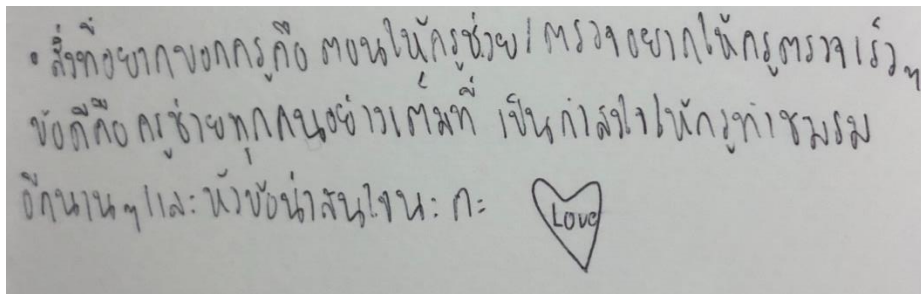 • สิ่งที่อยากบอกครูคือ ตอนให้ครูช่วย/ตรวจอยากให้ครูตรวจเร็วๆ
ข้อดีคือ ครูช่วยทุกคนอย่างเต็มที่ เป็นกำลังใจให้ครูทำชมรม
อีกนานๆและหัวข้อน่าสนใจนะคะ Love